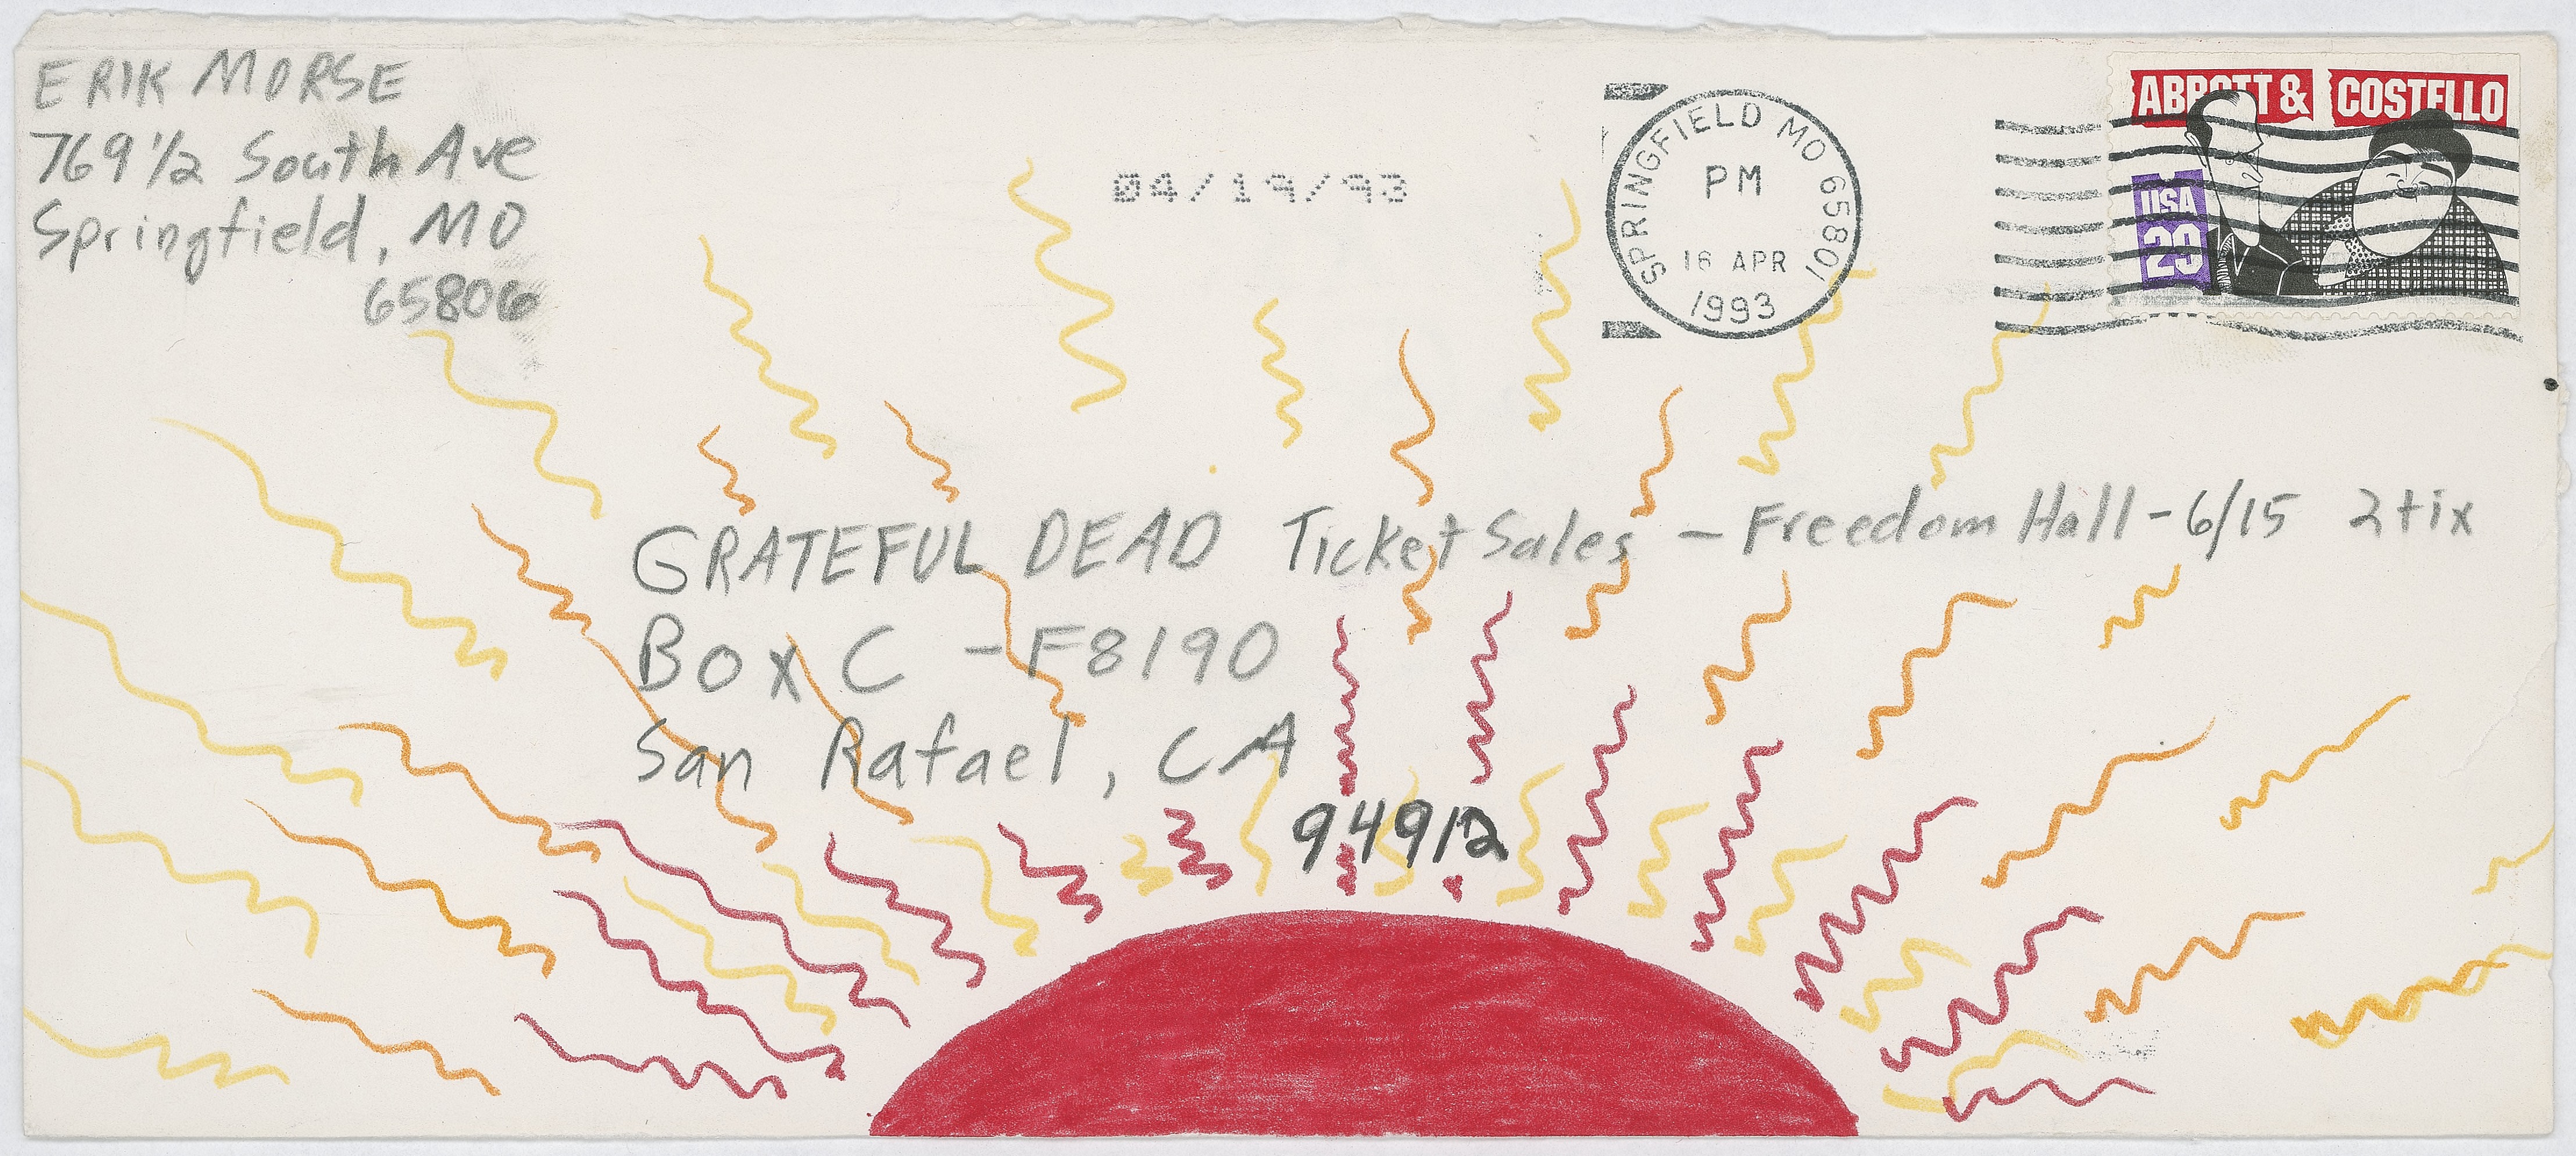 ERIK MORSE
769 1/2 South Ave
Springfield, MO
65806
04/19/93
SPRINGFIELD MO 65801
PM
16 APR
1993
ABBOTT & COSTELLO
USA
29
GRATEFUL DEAD Ticket Sales - Freedom Hall - 6/15 2 tix
Box C - F8190
San Rafael, CA
94912